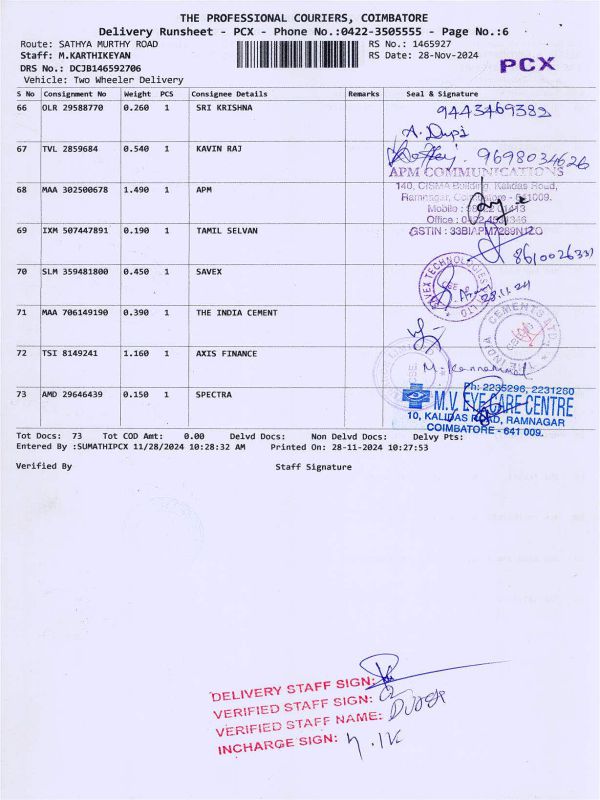 THE PROFESSIONAL COURIERS, COIMBATORE
Delivery Runsheet - PCX - Phone No.:0422-3505555 - Page No.:6
Route: SATHYA MURTHY ROAD
RS No.: 1465927
Staff: M.KARTHIKEYAN
RS Date: 28-Nov-2024
PCX
DRS No.: DCJB146592706
Vehicle: Two Wheeler Delivery
S No Consignment No Weight PCS Consignee Details Remarks Seal & Signature
66 OLR 29588770 0.260 1 SRI KRISHNA
9443469382
67 TVL 2859684 0.540 1 KAVIN RAJ
9698034626
APM COMMUNICATIONS
68 MAA 302500678 1.490 1 APM
140, CISMA Building, Kalidas Road,
Ramnagar, Coimbatore - 641009.
Mobile :
Office :
69 IXM 507447891 0.190 1 TAMIL SELVAN
GSTIN : 33BIAPM7289N1ZO
70 SLM 359481800 0.450 1 SAVEX
28.11.24
71 MAA 706149190 0.390 1 THE INDIA CEMENT
THE INDIA CEMENTS LTD.
72 TSI 8149241 1.160 1 AXIS FINANCE
73 AMD 29646439 0.150 1 SPECTRA
Ph: 2235296, 2231260
M.V. EYE CARE CENTRE
10, KALIDAS ROAD, RAMNAGAR
COIMBATORE - 641 009.
Tot Docs: 73 Tot COD Amt: 0.00 Delvd Docs: Non Delvd Docs: Delvy Pts:
Entered By :SUMATHIPCX 11/28/2024 10:28:32 AM Printed On: 28-11-2024 10:27:53
Verified By Staff Signature
DELIVERY STAFF SIGN:
VERIFIED STAFF SIGN:
VERIFIED STAFF NAME:
INCHARGE SIGN: